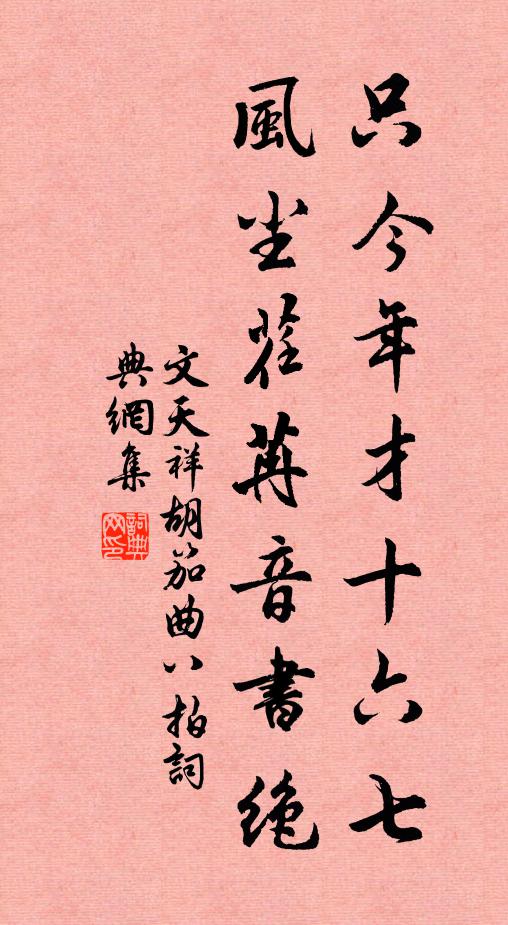 只今年才十六七
風尘荏苒音書绝
文天祥胡笳曲八拍詞
典網集
詞典
网印